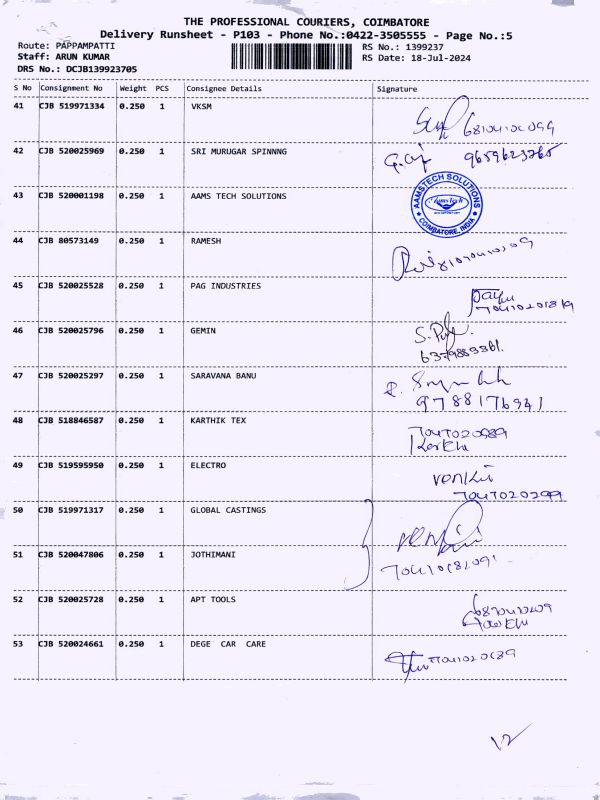 THE PROFESSIONAL COURIERS, COIMBATORE
Delivery Runsheet - P103 - Phone No.:0422-3505555 - Page No.:5
Route: PAPPAMPATTI RS No.: 1399237
Staff: ARUN KUMAR RS Date: 18-Jul-2024
DRS No.: DCJB139923705
S No Consignment No Weight PCS Consignee Details Signature
41 CJB 519971334 0.250 1 VKSM
42 CJB 520025969 0.250 1 SRI MURUGAR SPINNNG
43 CJB 520001198 0.250 1 AAMS TECH SOLUTIONS
AAMSTECH SOLUTIONS
Aams Tech
COIMBATORE, INDIA
44 CJB 80573149 0.250 1 RAMESH
45 CJB 520025528 0.250 1 PAG INDUSTRIES
46 CJB 520025796 0.250 1 GEMIN
47 CJB 520025297 0.250 1 SARAVANA BANU
9788176941
48 CJB 518846587 0.250 1 KARTHIK TEX
49 CJB 519595950 0.250 1 ELECTRO
50 CJB 519971317 0.250 1 GLOBAL CASTINGS
51 CJB 520047806 0.250 1 JOTHIMANI
52 CJB 520025728 0.250 1 APT TOOLS
53 CJB 520024661 0.250 1 DEGE CAR CARE